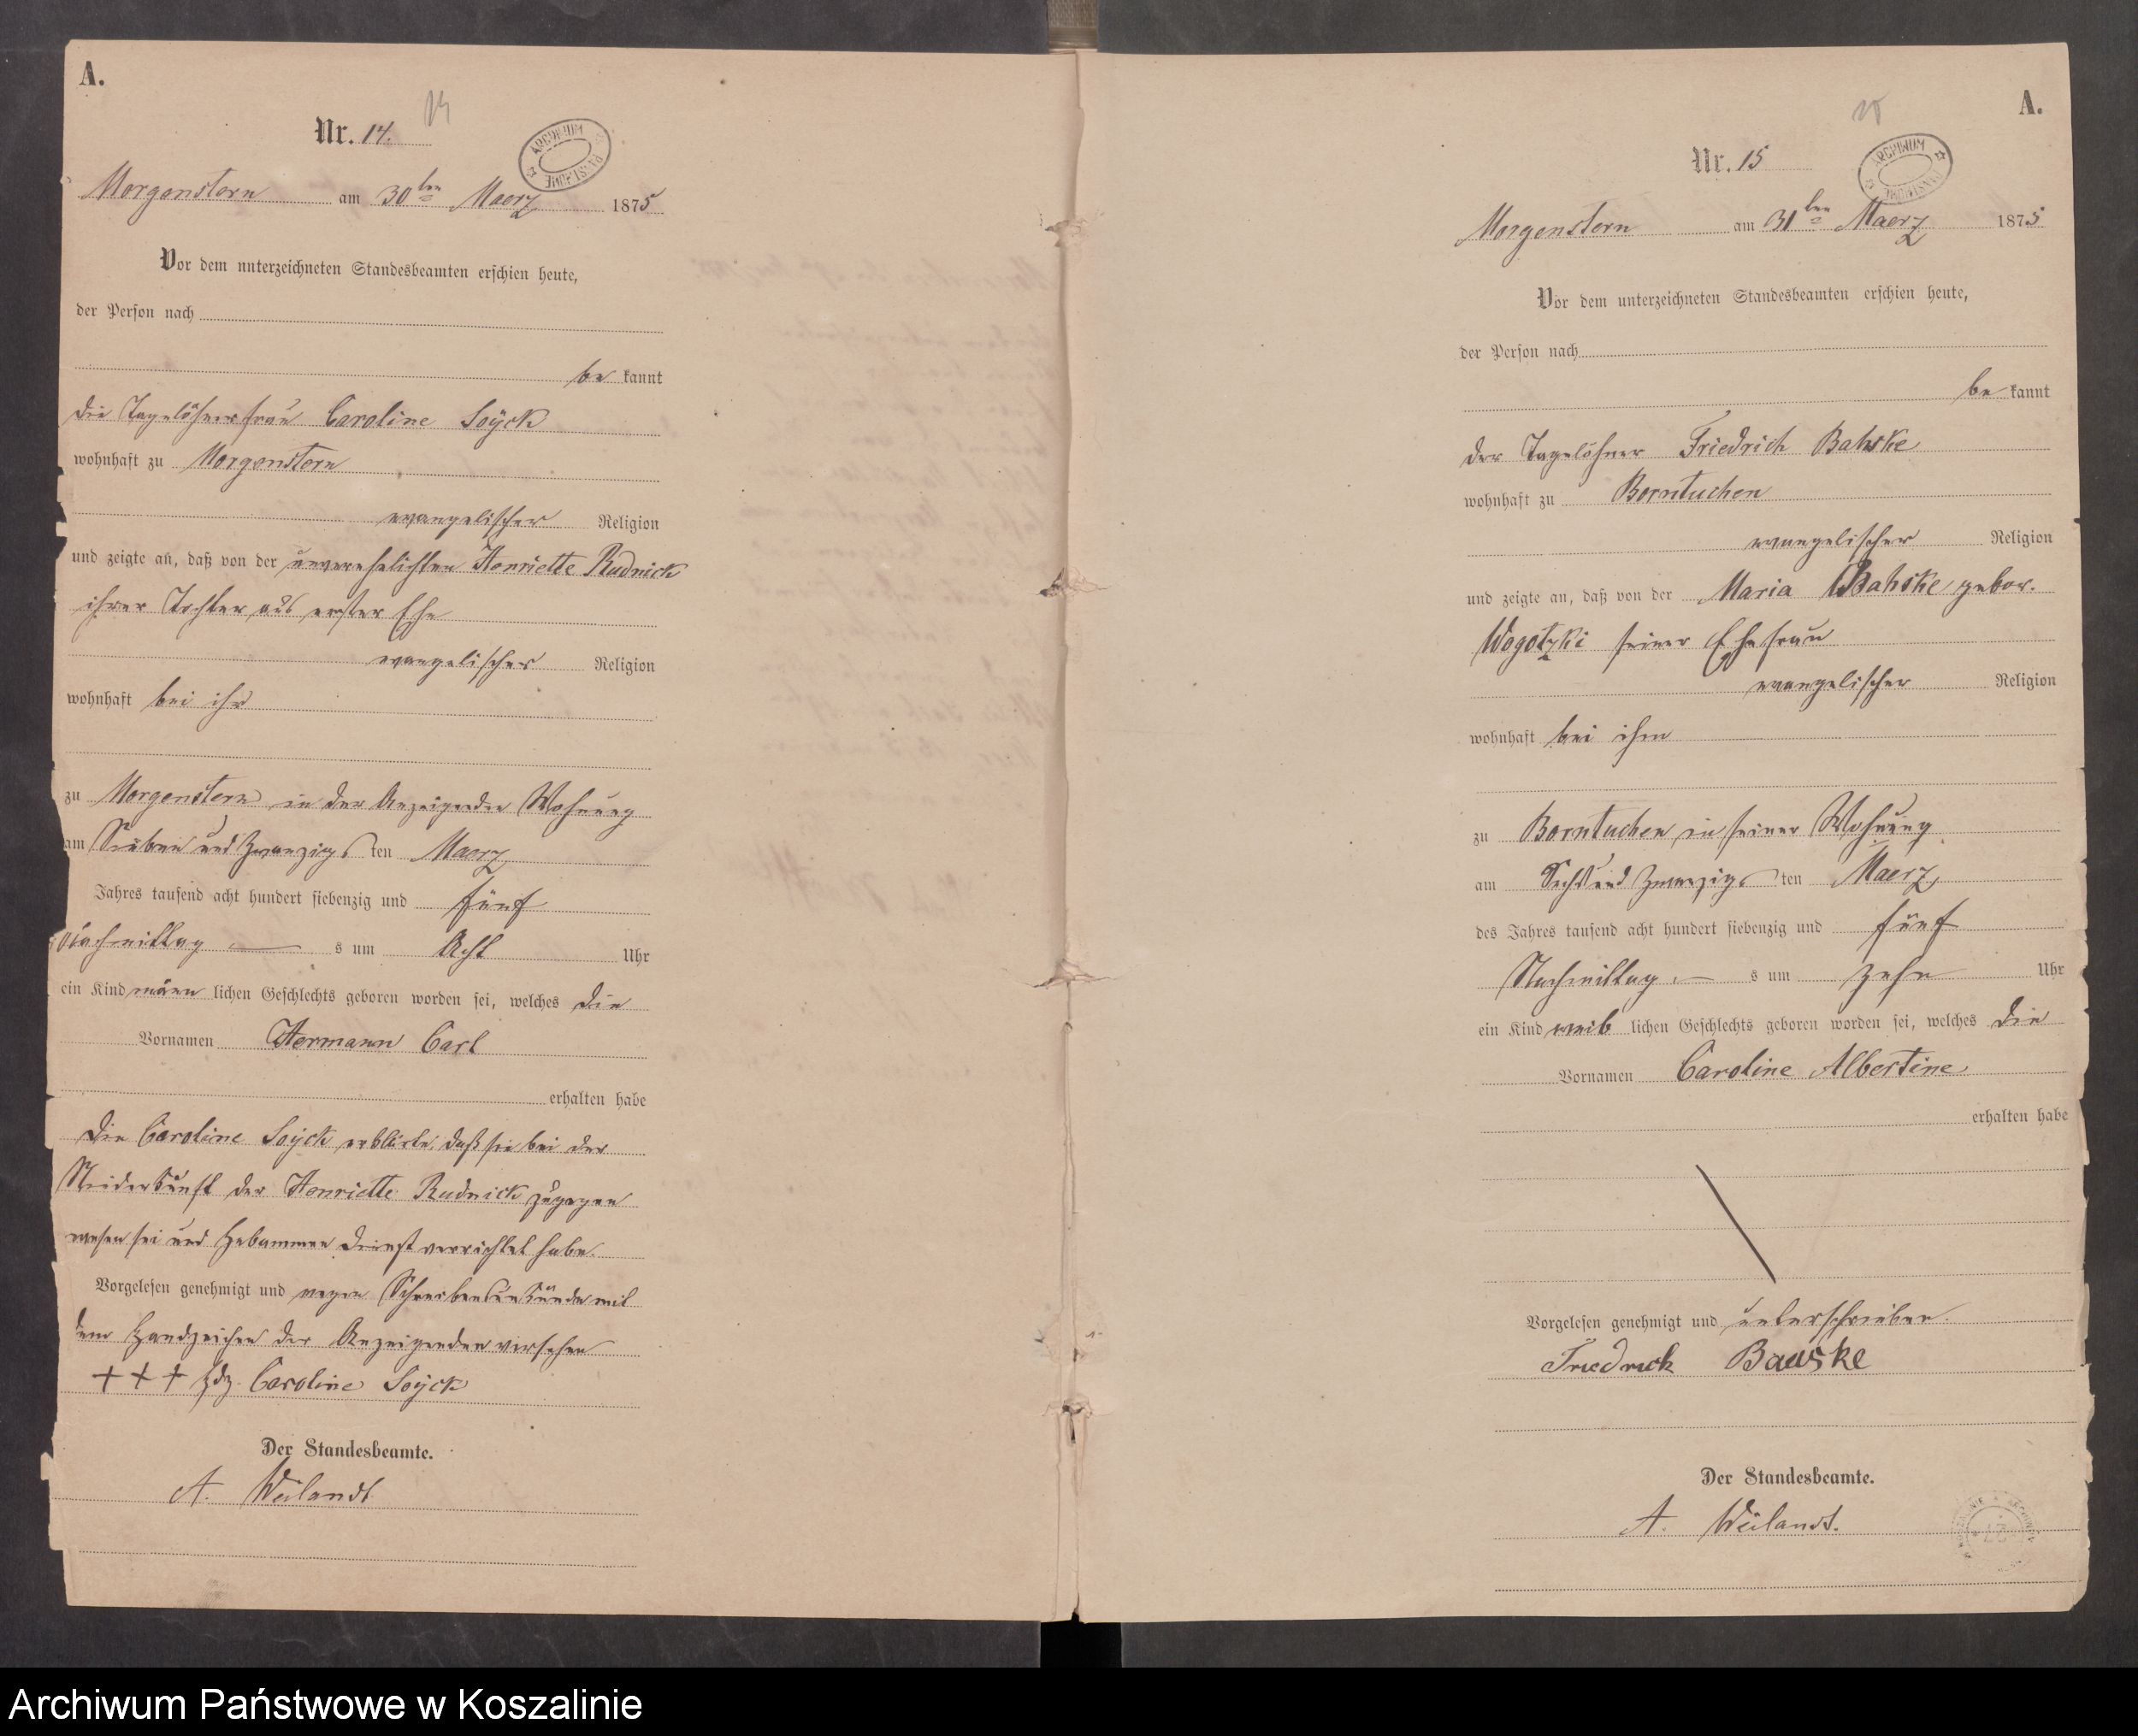 A.
14
Nr. 14.
ARCHIWUM PAŃSTWOWE
Morgenstern am 30ten Maerz 1875
Vor dem unterzeichneten Standesbeamten erschien heute,
der Person nach
be kannt
die Tagelöhnerfrau Caroline Soÿck
wohnhaft zu Morgenstern
evangelischer Religion
und zeigte an, daß von der unverehelichten Henriette Rudnick
ihrer Tochter aus erster Ehe
evangelischer Religion
wohnhaft bei ihr
zu Morgenstern in der Anzeigenden Wohnung
am Sieben und Zwanzigs ten Maerz
Jahres tausend acht hundert siebenzig und fünf
Nachmittag s um Acht Uhr
ein Kind männ lichen Geschlechts geboren worden sei, welches die
Vornamen Hermann Carl
erhalten habe
Die Caroline Soÿck erklärte, daß sie bei der
Niederkunft der Henriette Rudnick zugegen
wesen sei und Hebammen dienst verrichtet habe.
Vorgelesen genehmigt und wegen Schreibensunkunde mit
dem Handzeichen der Anzeigenden versehen
+++ Hdz. Caroline Soÿck
Der Standesbeamte.
A. Weilandt
A.
15
Nr. 15
ARCHIWUM PAŃSTWOWE
Morgenstern am 31ten Maerz 1875
Vor dem unterzeichneten Standesbeamten erschien heute,
der Person nach
be kannt
der Tagelöhner Friedrich Bahske
wohnhaft zu Borntuchen
evangelischer Religion
und zeigte an, daß von der Maria Bahske gebor.
Wogotzki seiner Ehefrau
evangelischer Religion
wohnhaft bei ihm
zu Borntuchen in seiner Wohnung
am Sechs und Zwanzigs ten Maerz
des Jahres tausend acht hundert siebenzig und fünf
Nachmittag s um zehn Uhr
ein Kind weib lichen Geschlechts geboren worden sei, welches die
Vornamen Caroline Albertine
erhalten habe
Vorgelesen genehmigt und unterschrieben.
Friedrich Bauske
Der Standesbeamte.
A. Weilandt.
Archiwum Państwowe w Koszalinie